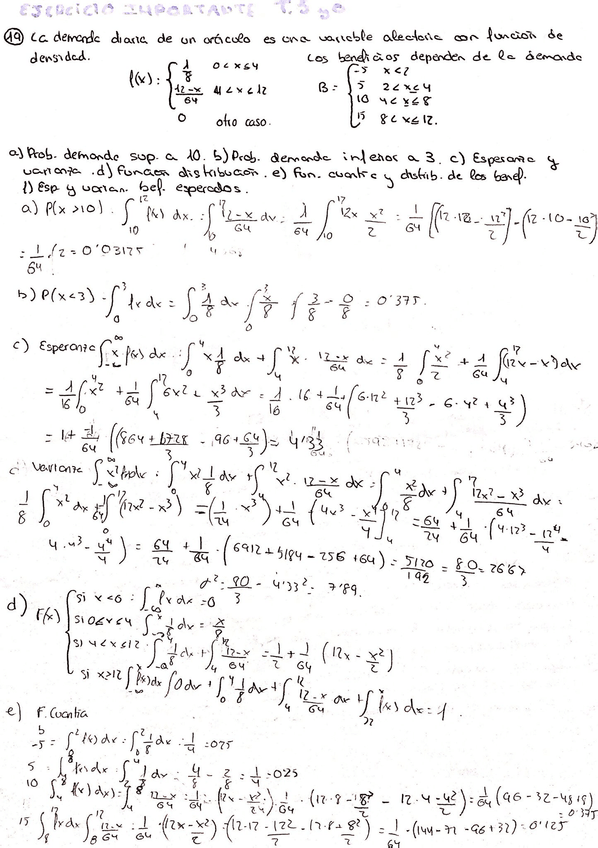 EJERCICIO IMPORTANTE T.3 y
19 La demanda diaria de un artículo es una variable aleatoria con función de
densidad. Los beneficios dependen de la demanda
f(x): 1/8 0<x≤4 B = -5 x<2
12-x/64 4<x≤12 5 2<x≤4
0 otro caso. 10 4<x≤8
15 8<x≤12.
a) Prob. demanda sup. a 10. b) Prob. demanda inferior a 3. c) Esperanza y
varianza. d) Función distribución. e) Fun. cuantia y distrib. de los benef.
f) Esp y varian. bef. esperados.
a) P(x>10) ∫10^12 f(x) dx = ∫10^12 12-x/64 dx = 1/64 ∫10^12 12x x²/2 = 1/64 [(12·12 - 12²/2) - (12·10 - 10²/2)
= 1/64 · 2 = 0'03125
b) P(x<3) ∫0^3 fx dx = ∫0^3 1/8 dx ∫0^3 x/8 3/8 - 0/8 = 0'375.
c) Esperanza ∫x f(x) dx = ∫0^4 x 1/8 dx + ∫4^12 x · 12-x/64 dx = 1/8 ∫0^4 x²/2 + 1/64 ∫4^12 (12x - x) dx
= 1/16 ∫0^4 x² + 1/64 ∫4^12 6x² + x³/3 dx = 1/16 · 16 + 1/64 (6·12² + 12³/3 - 6·4² + 4³/3)
= 1 + 1/64 ((864 + 1728/3 - 96 + 64/3) = 4'33
c Varianza ∫x² f(x) dx = ∫0^4 x² 1/8 dx + ∫4^12 x² · 12-x/64 dx = ∫0^4 x²/8 dx + ∫4^12 12x² - x³/64 dx =
1/8 ∫0^4 x² dx + 1/64 ∫4^12 (12x² - x³) = (1/24 · x³) + 1/64 (4x³ - x⁴/4) = 64/24 + 1/64 · (4·12³ - 12⁴/4 -
4·4³ - 4⁴/4) = 64/24 + 1/64 · (6912 + 5184 - 256 + 64) = 5120/192 = 80/3 = 26'67
σ² = 80/3 - 4'33² = 7'89.
d) F(x) si x<0 : ∫ fx dx = 0
si 0≤x≤4 ∫ 1/8 dx = x/8
si 4<x≤12 ∫ 1/8 dx + ∫ 12-x/64 = 1/2 + 1/64 (12x - x²/2)
si x≥12 ∫ f(x) dx ∫0 dx + ∫0^4 1/8 dx + ∫4^12 12-x/64 dx + ∫ f(x) dx = 1.
e) F. Cuantia
b
-5 = ∫0^2 f(x) dx = ∫0^2 1/8 dx = 1/4 = 0'25
5 = ∫ fx dx = ∫ 1/8 dx = 4/8 - 2/8 = 1/4 = 0'25
10 ∫4^8 f(x) dx = ∫4^8 12-x/64 = 1/64 · (12x - x²/2) 1/64 · (12·8 - 8²/2 - 12·4 - 4²/2) = 1/64 (96 - 32 - 48+8) = 0'375
15 ∫8^12 fx dx ∫8^12 12-x/64 = 1/64 · (12x - x²/2) = (12·12 - 12²/2 - 12·8 + 8²/2) = 1/64 · (144 - 72 - 96 + 32) = 0'125